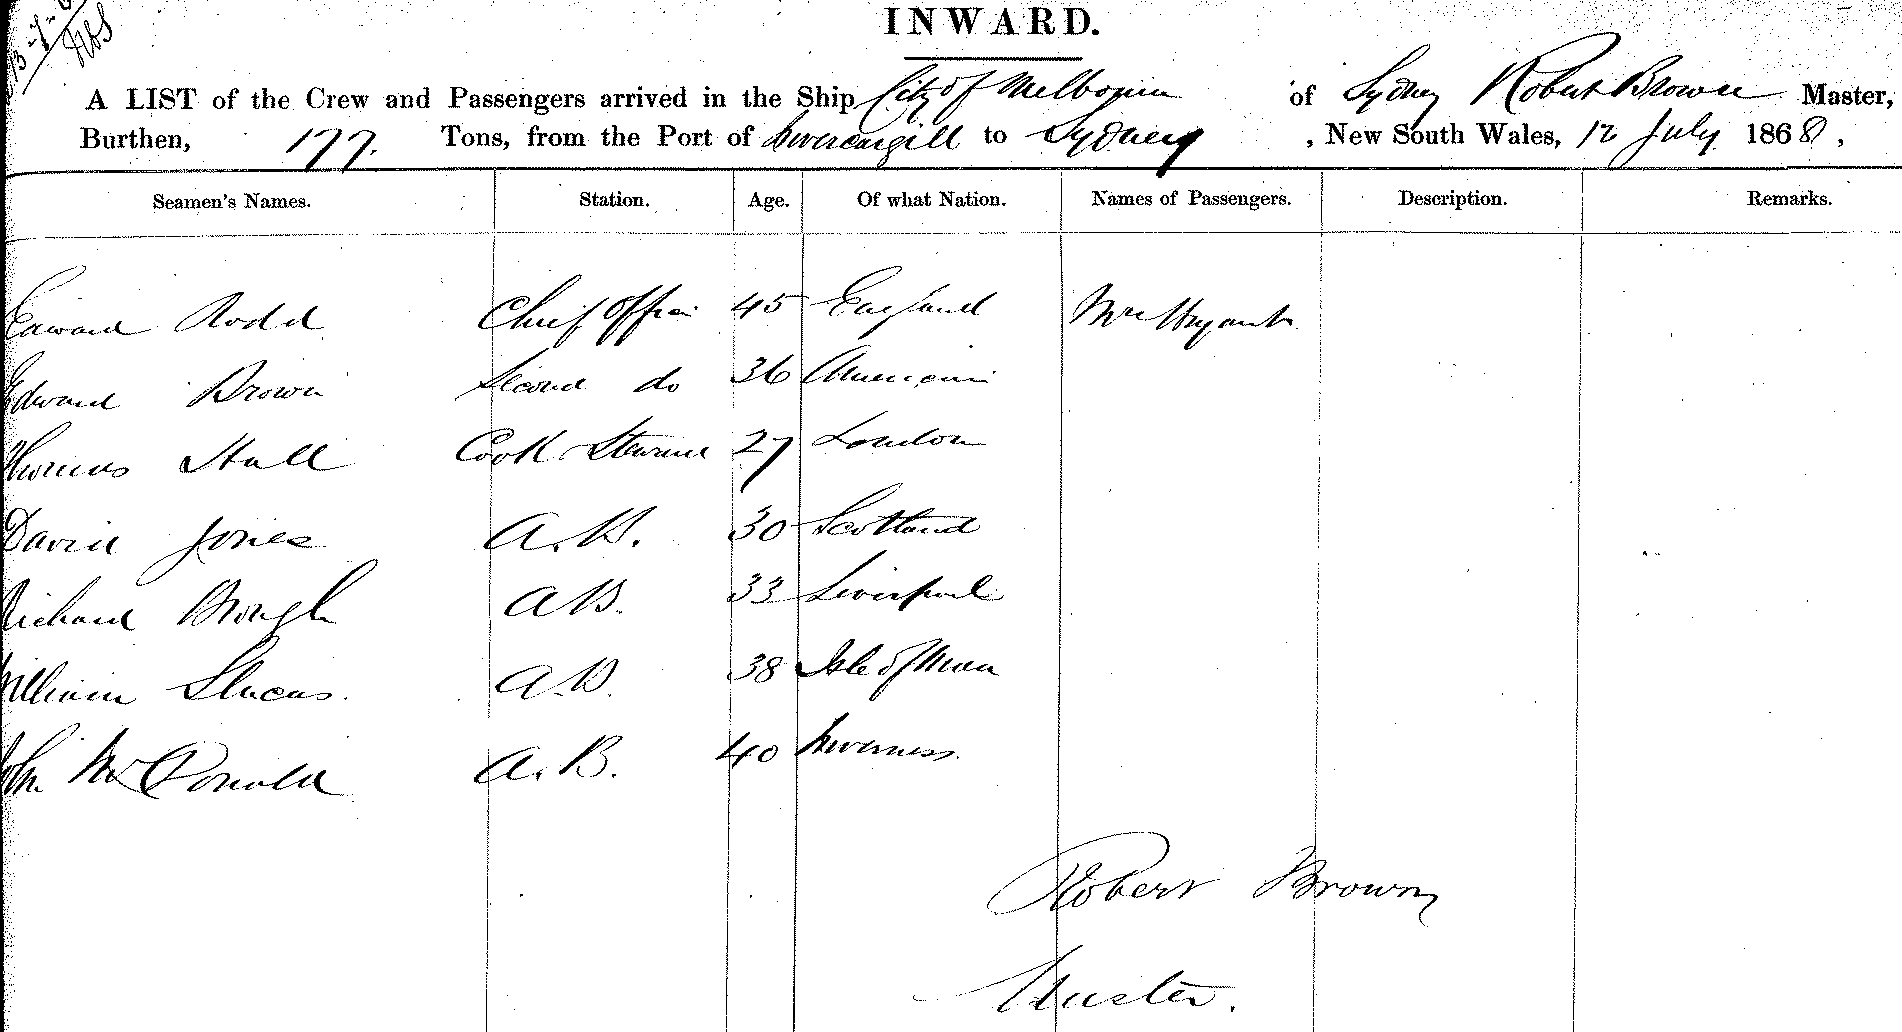 INWARD.
A LIST of the Crew and Passengers arrived in the Ship City of Melbourne of Sydney Robert Brown Master,
Burthen, 177. Tons, from the Port of Invercargill to Sydney, New South Wales, 12 July 1868,
Seamen's Names. Station. Age. Of what Nation. Names of Passengers. Description. Remarks.
Edward Rodd Chief Officer 45 England Mr
Edward Brown Second do 36 American
Thomas Hall Cook Steward 27 London
David Jones A.B. 30 Scotland
Richard Brough A.B. 33 Liverpool
William Lucas. A.B. 38 Isle of Man
John McDonald A.B. 40 Inverness.
Robert Brown
Master.